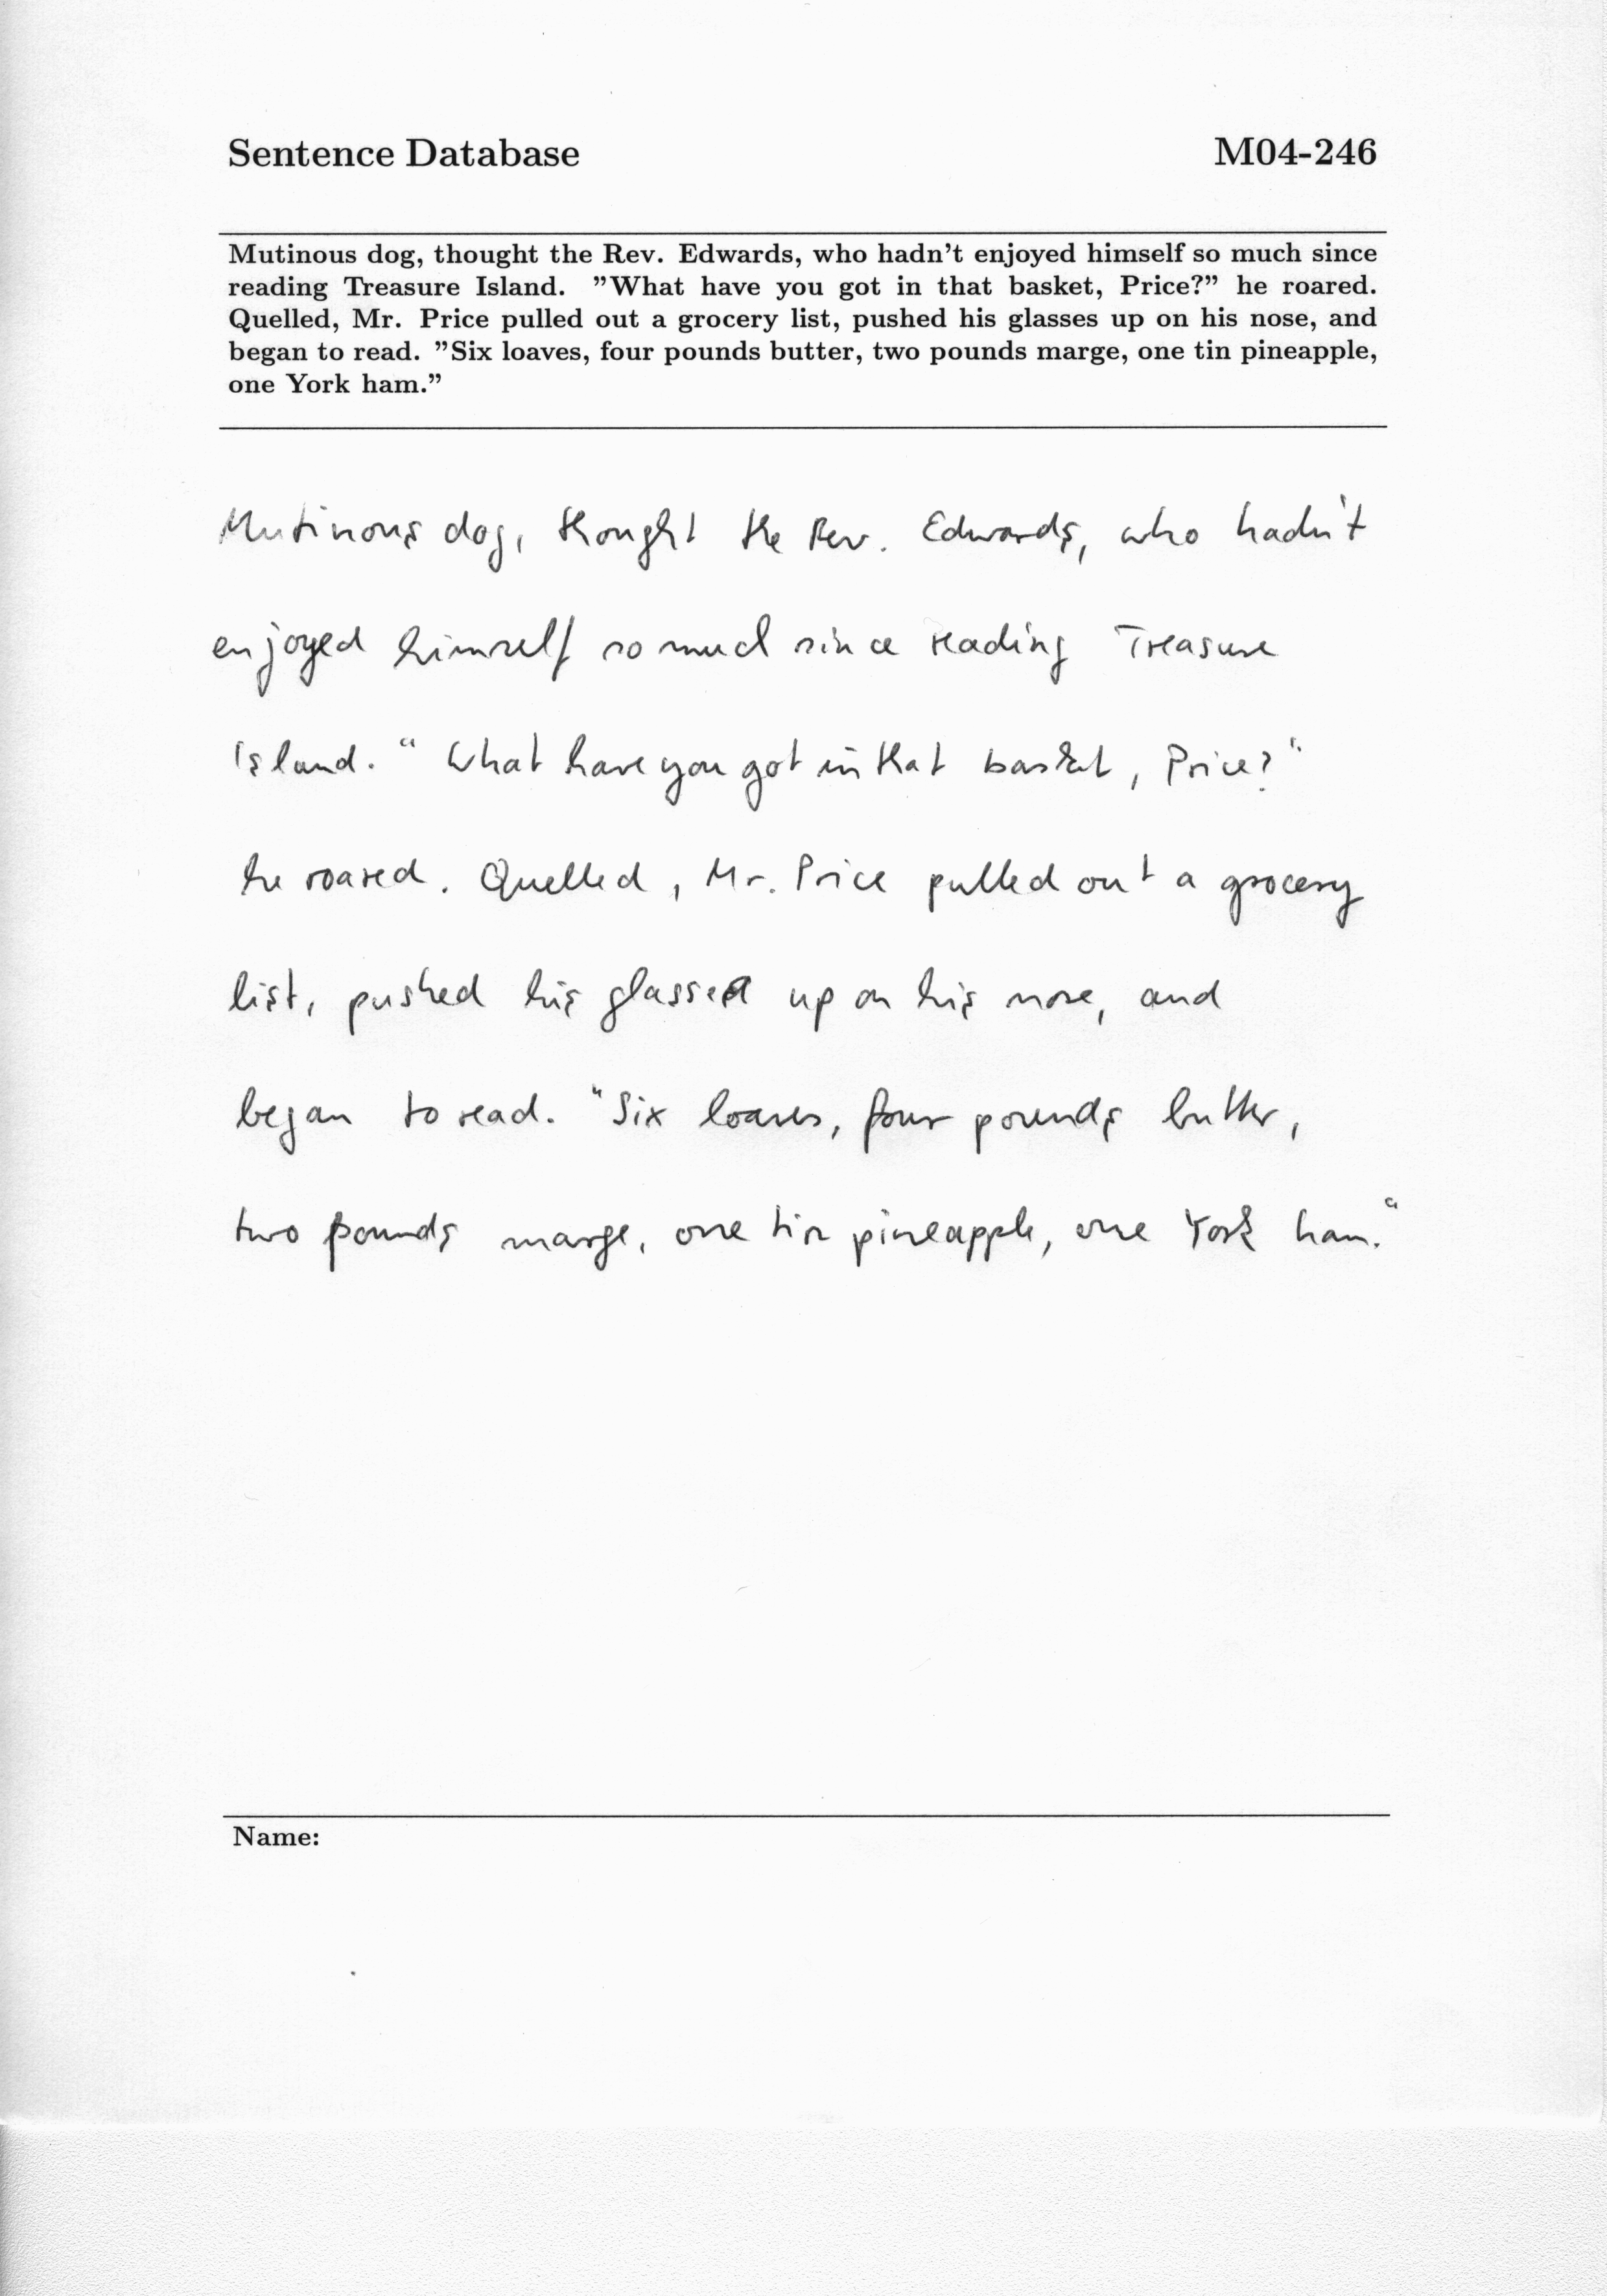 Sentence Database M04-246
Mutinous dog, thought the Rev. Edwards, who hadn't enjoyed himself so much since
reading Treasure Island. ”What have you got in that basket, Price?” he roared.
Quelled, Mr. Price pulled out a grocery list, pushed his glasses up on his nose, and
began to read. ”Six loaves, four pounds butter, two pounds marge, one tin pineapple,
one York ham.”
Mutinous dog, thought the Rev. Edwards, who hadn't
enjoyed himself so much since reading Treasure
Island. “What have you got in that basket, Price?“
he roared. Quelled, Mr. Price pulled out a grocery
list, pushed his glasses up on his nose, and
began to read. "Six loaves, four pounds butter,
two pounds marge, one tin pineapple, one York ham.“
Name: